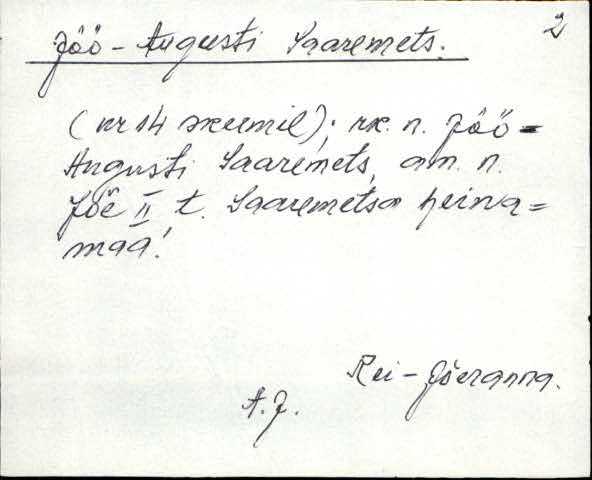 2
Jöö-Augusti Saaremets.
(nr 14 skeemil); rk. n. Jöö-
Augusti Saaremets, am. n.
Jõe II t. Saaremetsa heina=
maa!
Rei-Jõeranna.
A.J.